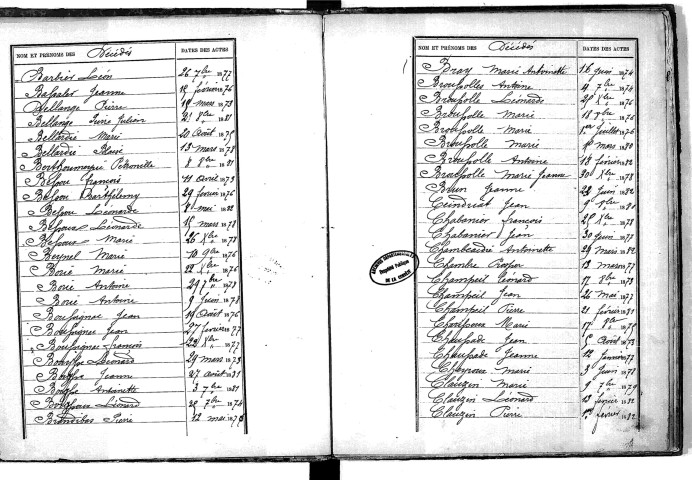 NOM ET PRÉNOMS DES Décédés DATES DES ACTES
Barbier Léon 26 7bre 1877
Bassaler Jeanne 12 février 1876
Bellange Pierre 19 mars 1873
Bellange Pierre Julien 21 8bre 1881
Bellardie Marie 20 Août 1875
Bellardie Blaise 13 mars 1878
Berthoumeyrie Petronille 8 8bre 1881
Besson François 11 Avril 1873
Besson Barthélemy 29 février 1876
Besson Léonarde 8 mai 1882
Léonarde 15 mars 1878
Marie 26 Xbre 1878
Beynel Marie 10 9bre 1876
Borie Marie 22 Xbre 1876
Borie Antoine 29 7bre 1878
Borie Antoine 9 Juin 1878
Boussignac Jean 19 Août 1876
Boussignac Jean 27 février 1877
Boussignac François 29 Xbre 1877
Léonard 29 mars 1873
Jeanne 27 Août 1881
Antoinette 3 7bre 1881
Léonard 7bre 1874
Brondibas Pierre 12 mai 1875
NOM ET PRÉNOMS DES Décédés DATES DES ACTES
Bray Marie Antoinette 16 Juin 1874
Broussolles Antoine 4 7bre 1874
Broussolle Léonarde 28 Xbre 1876
Broussolle Marie 18 7bre 1876
Broussolle Marie 1er Juillet 1876
Broussolle Marie mars 1880
Broussolle Antoine 18 février 1882
Broussolle Marie Jeanne 30 Xbre 1878
Brun Jeanne 22 Juin 1882
Ceindriat Jean 9 1880
Chabanier François 28 Xbre 1878
Chabanier Jean 30 Juin 1877
Chambeaudie Antoinette 29 mars 1882
Chambre Prosper 13 mars 1877
Champeil Léonard 17 8bre 1873
Champeil Jean 26 mai 1877
Champeil Pierre 21 février 1881
Marie 17 8bre 1875
Chaussade Jean 5 Août 1873
Chaussade Jeanne 12 Janvier 1877
Cheyroux Marie 3 Juin 1878
Clauzin Marie 9 7bre 1879
Clauzin Léonard 13 février 1882
Clauzin Pierre février 1882
ARCHIVES DÉPARTEMENTALES
DE LA CORRÈZE